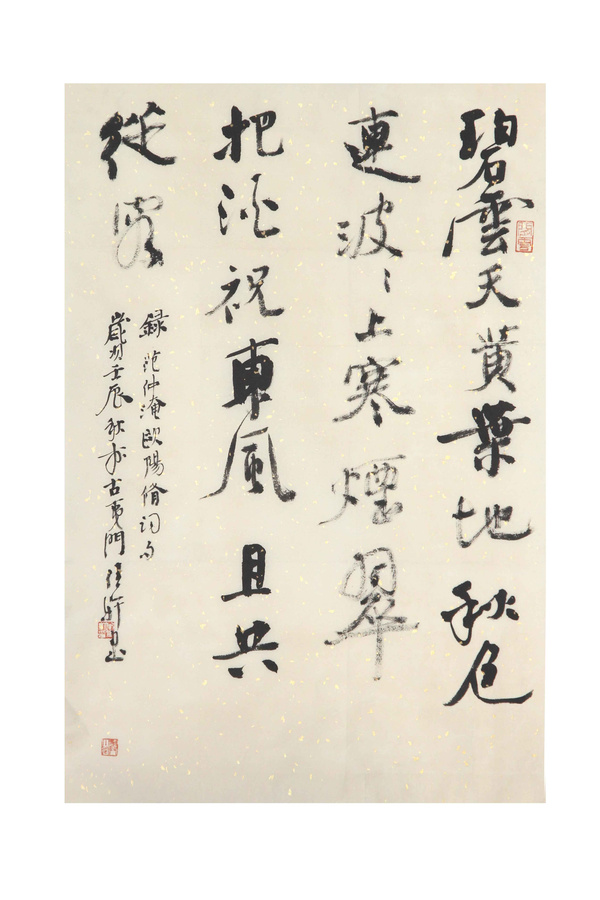 碧雲天黄葉地秋色
連波〻上寒煙翠
把酒祝東風且共
從容
録范仲淹歐陽脩詞句
歲在壬辰秋於古夷門佳軒書